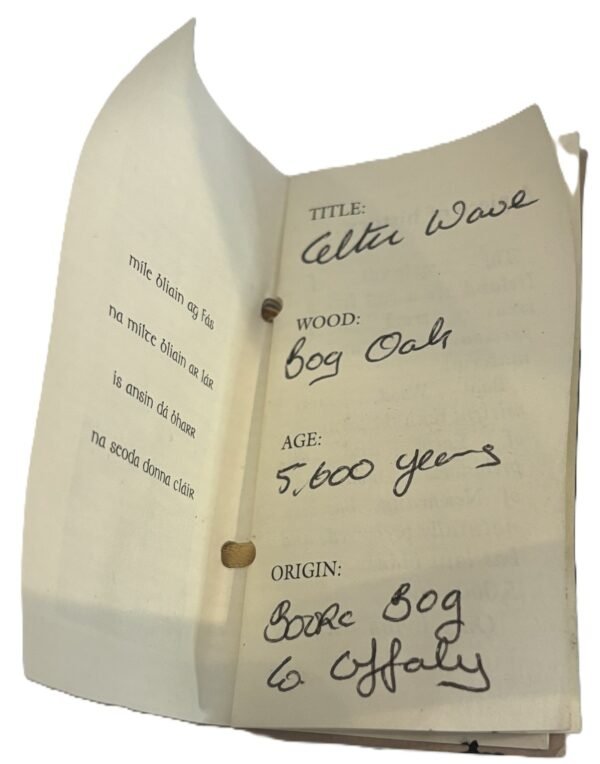 míle bliain ag fás
na mílte bliain ar lár
is ansin dá bharr
na seoda donna cláir
TITLE:
Celtic Wave
WOOD:
Bog Oak
AGE:
5,600 years
ORIGIN:
Boora Bog
Co Offaly